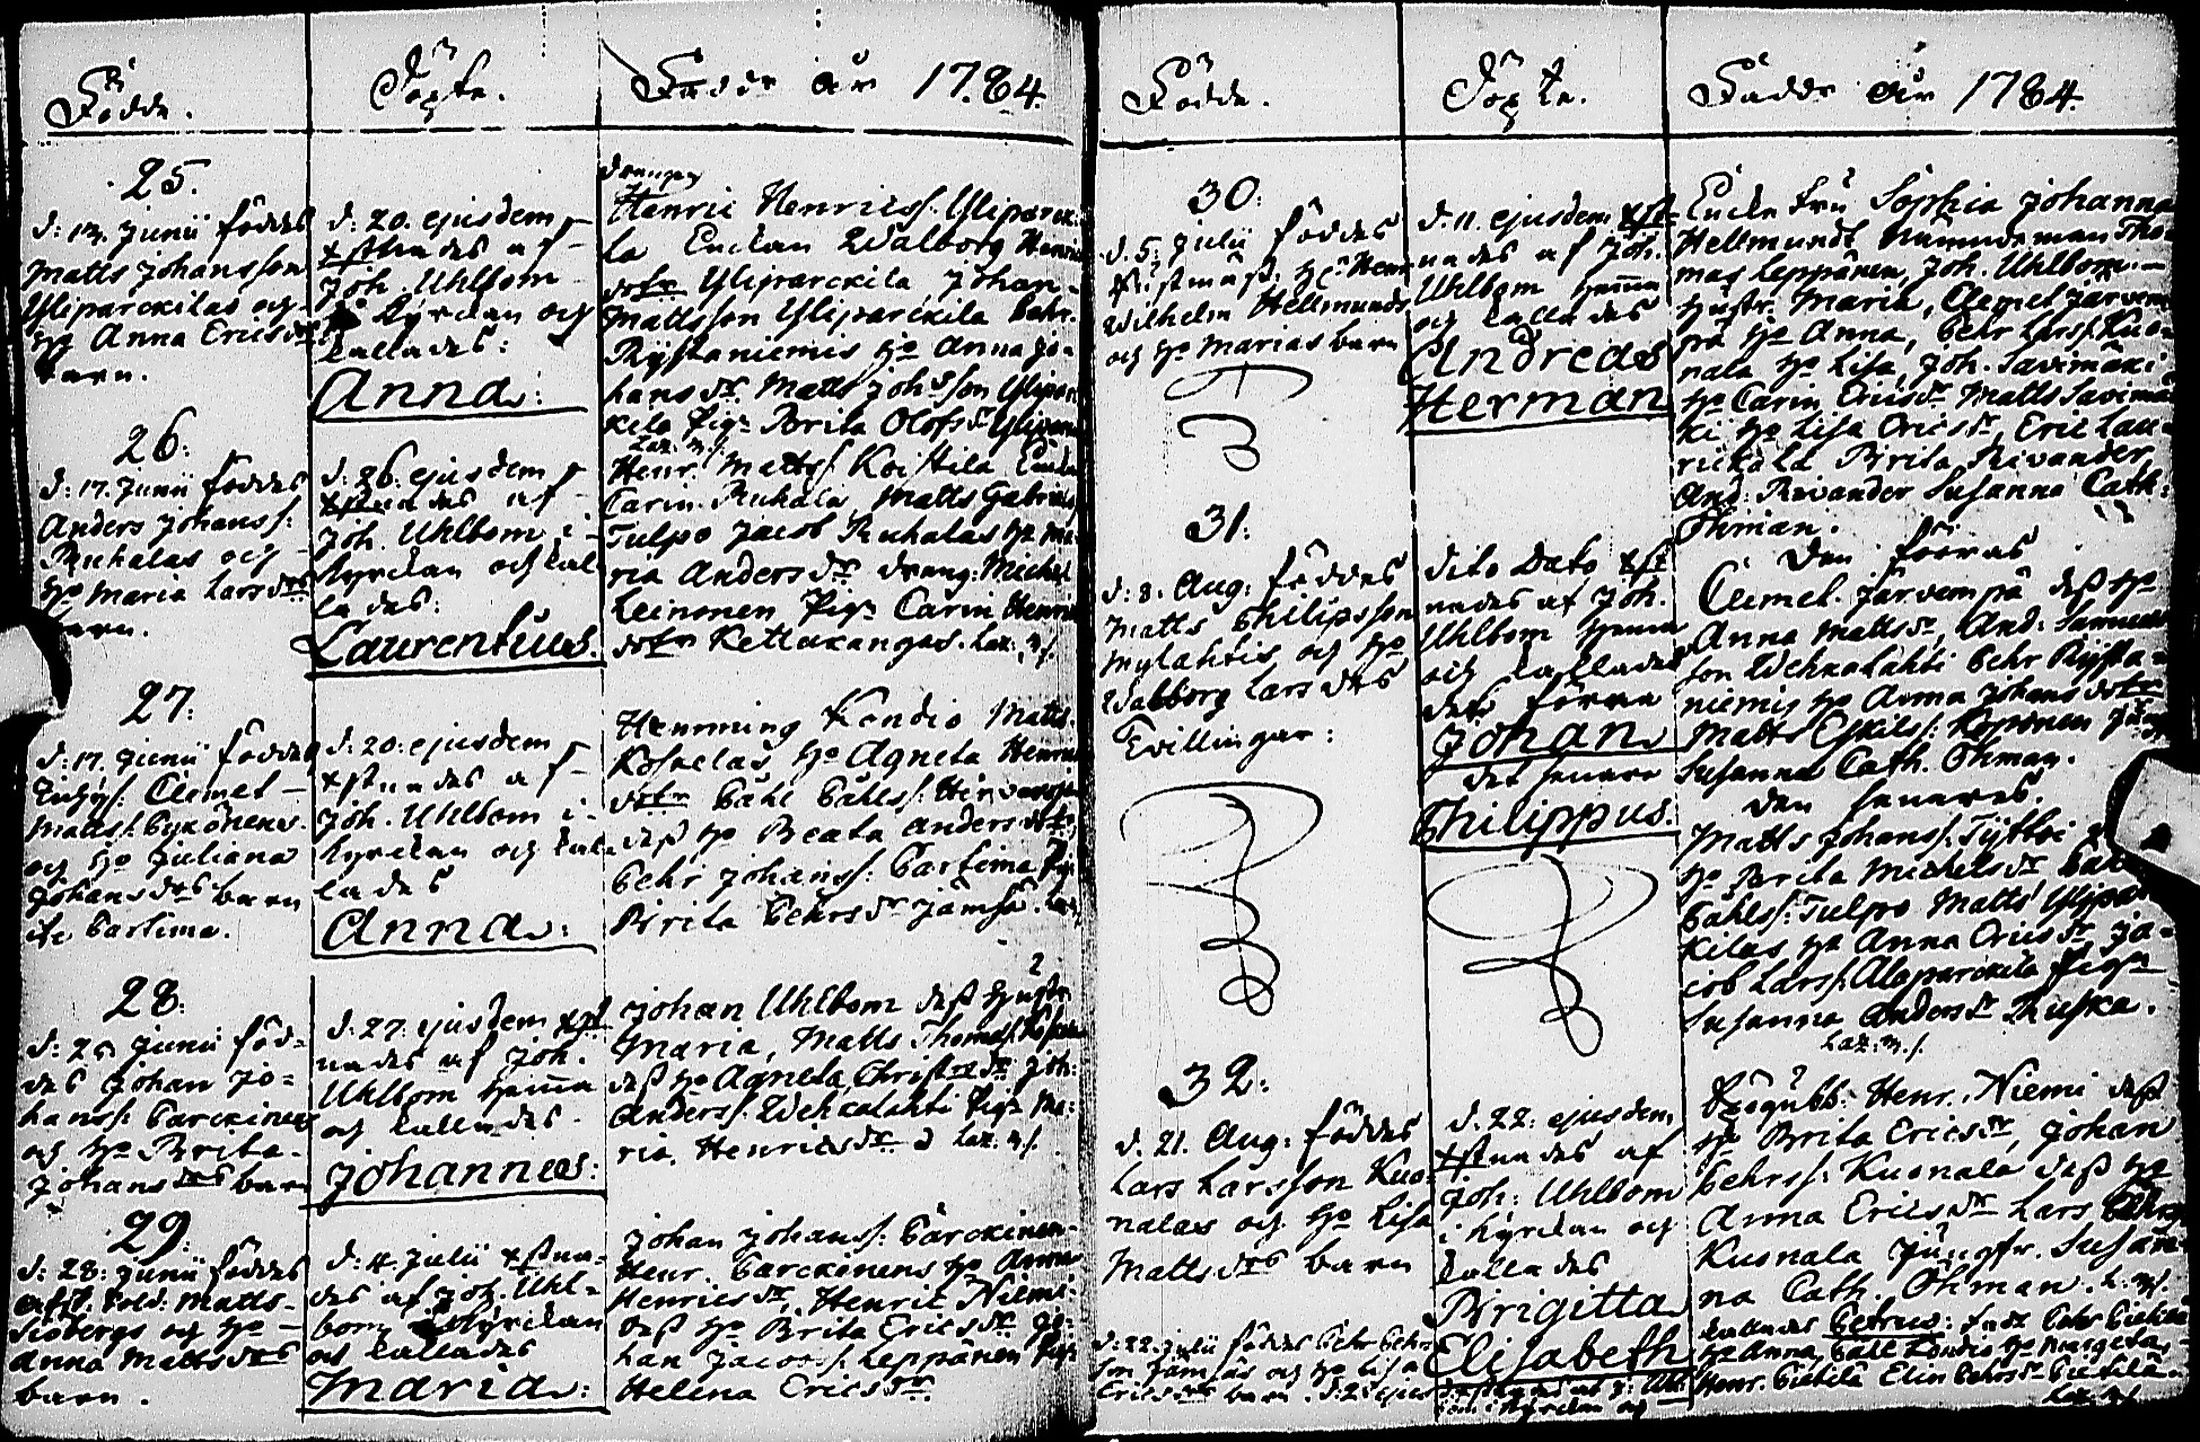 Födde.
Döpte.
Faddr år 1784.
25.
d: 13. Junii föddes
Matts Johansson
Yliparckilas och
H:o Anna Ericsd:rs
barn.
d: 20. ejusdem
xstnades af
Joh. Uhlbom
Kyrckan och
kallades:
Anna:
drengen
Henric Henricss. Yliparcki-
la Enckan Walborg Henrics
dotr Yliparckila, Johan
Mattsson Yliparckila Pehr
Rÿstaniemis H:o Anna Jo-
hansd:r Matts Johsson Ylipar
kila Pig: Brita Olofsd:r
Laz: m.f.
26:
d: 17. Junii föddes
Anders Johanss:
Ruhalas och
H:o Maria Larsd:rs
barn.
d: 26: ejusdem
xstnades af
Joh. Uhlbom i
Kyrckan och kal
lades:
Laurentius.
Henr. Mattss. Koistila Enck
Carin Ruhala, Matts Gabriels
Tulpo Jacob Ruhalas H:o Ma-
ria Andersd:r dreng: Michel
Leinonen Pig: Carin Henrics
dotr Kettukangas. Laz: m.f.
27:
d: 17. Junii föddes
Clemet
Matss: Pykönens
och H:o Juliana
Johansd:rs barn
ifr Partima.
d: 20: ejusdem
xstnades af
Joh. Uhlbom i
Kyrckan och kal
lades
Anna:
Hemming Kondio Matts
Koskelas H:o Agneta Henrics
dotr Påhl Påhlss:
dess H:o Beata Andersdotr
Pehr Johanss: Partima Pig:
Brita Pehrsd:r Jämsä. Laz:
28:
d: 25 Junii föd-
des Johan Jo-
hanss: Parckinens
och H:o Brita
Johansd:rs barn
d: 27. ejusdem xst
nades af Joh.
Uhlbom hemma
och kallades
Johannes:
2
Johan Uhlbom dess Hustr
Maria, Matts Thomass.
dess H:o Agneta Christ d:r Joh:
Anderss: Wehkalahti Pig: Ma:
ria. Henricsd:r Laz: m.f.
29:
d: 28: Junii föddes
Sold: Matts
Siöbergs och H:o
Anna Mattsd:rs
barn.
d: 4. Julii xstna-
des af Joh. Uhl-
bom Kyrckan
och kallades
Maria:
Johan Johanss: Parckinen
Henr. Parckinens H:o Anna
Henricsd:r, Henric Niemi
dess H:o Brita Ericsd:r Jo-
han Jacobss: Leppänen Pig:
Helena Ericsd:r.
Födde.
Döpte.
Faddr år 1784.
30:
d. 5: Julii föddes
H:r Henr
Wilhelm Hellmunds
och H:o Marias barn
d. 11. ejusdem xst-
nades af Joh.
Uhlbom hemma
och kallades
Andreas
Herman
Encke Fru Sophia Johanna
Hellmundt Nämndeman Tho-
mas Leppänen, Joh. Uhlbom
Hustr. Maria, Clemet Järvem
pä H:o Anna, Pehr Larss: Kuo-
nala H:o Lisa, Joh. Savimäki
H:o Carin Ericsd:r Matts Savimä
ki H:o Lisa Ericsd:r, Eric Lau-
rickala Brita Rivander,
And: Rivander Susanna Cath:
Öhman.
31:
d: 8. Aug: föddes
Matts Philipsson
Mylahtis och H:o
Walborg Larsdrs
Tvillingar:
dito Dato xst
nades af Joh.
Uhlbom hemma
och kallades
det förra
Johan
det senare
Philippus.
den förras
Clemet Järvempä dess H:o
Anna Mattsd:r, And: Samuels
son Wehkalahti Pehr Rÿsta-
niemis H:o Anna Johansdotr
Matts Eskilss: Koponen Jungfr
Susanna Cath. Öhman.
den senares.
Matts Johanss: Tÿttöi
H:o Brita Michelsd:r
Påhlss: Tulpo Matts Ylipar
kilas H:o Anna Ericsd:r Ja-
cob Larss: Alaparckila Pigan
Susanna Andersd:r Ruska.
Laz: m.f.
32:
d. 21. Aug: föddes
Lars Larsson Kuo-
nalas och H:o Lisa
Mattsd:rs barn
d. 22: ejusdem
xstnades af
Joh: Uhlbom
i Kyrckan och
kallades
Brigitta
Elisabeth
Henr. Niemi dess
H:o Brita Ericsd:r, Johan
Pehrss: Kuonala dess H:o
Anna Ericsd:r Lars Pehrs
Kuonala Jungfr. Susan-
na Cath. Öhman. L. m.f.
d: 22: Julii föddes Pehr Pehrs
son Jämsäs och H:o Lisa
Ericsd:rs barn. d: 2 ejus
xstnades af J: Uhl
bom i Kyrckan och
kallades Petrus: Fadr Pehr
H:o Anna, Påhl Kondio H:o Margeta,
Henr. Pietilä Elin Pehrsd:r Pietilä.
Laz: m.f.